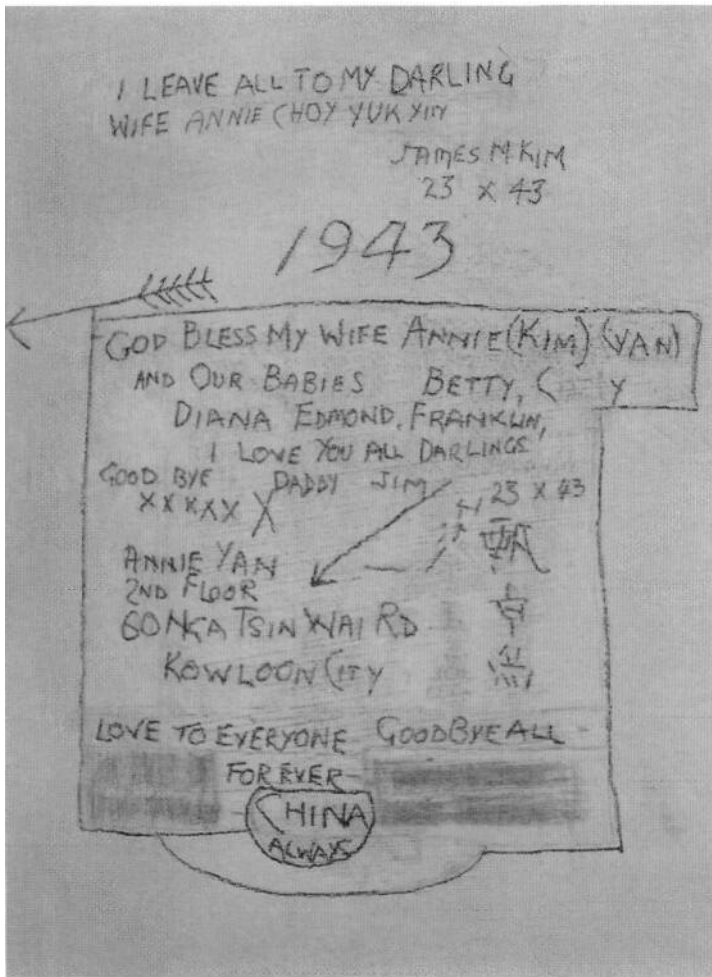 I LEAVE ALL TO MY DARLING
WIFE ANNIE CHOY YUK YIN
JAMES M KIM
23 X 43
1943
GOD BLESS MY WIFE ANNIE (KIM) (YAN)
AND OUR BABIES BETTY,
DIANA EDMOND, FRANKLIN,
I LOVE YOU ALL DARLINGS
GOOD BYE DADDY JIM 23 X 43
X X X X X X
ANNIE YAN
2ND FLOOR
60 NGA TSIN WAI RD
KOWLOON CITY
LOVE TO EVERYONE GOODBYE ALL
FOREVER
CHINA
ALWAYS